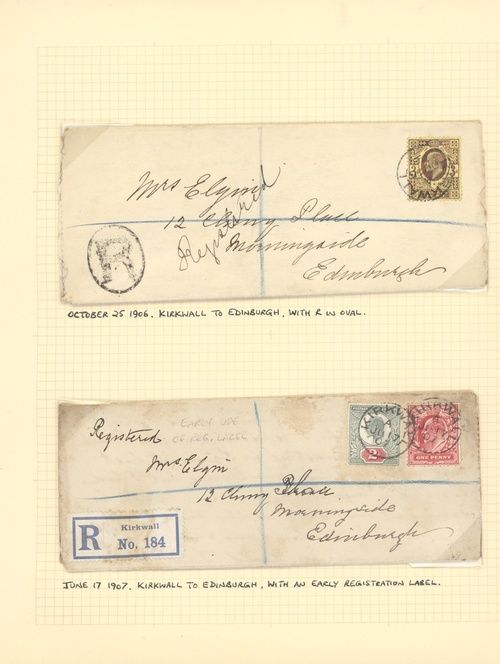 Mrs Elgin
12 Cluny Place
Registered
Morningside
Edinburgh
R
OCTOBER 25 1906. KIRKWALL TO EDINBURGH, WITH R IN OVAL.
Registered
EARLY USE
OF REG. LABEL
KIRKWALL
KIRKWALL
2
ONE PENNY
Mrs Elgin
12 Cluny Place
Morningside
Edinburgh
R Kirkwall
No. 184
JUNE 17 1907. KIRKWALL TO EDINBURGH, WITH AN EARLY REGISTRATION LABEL.